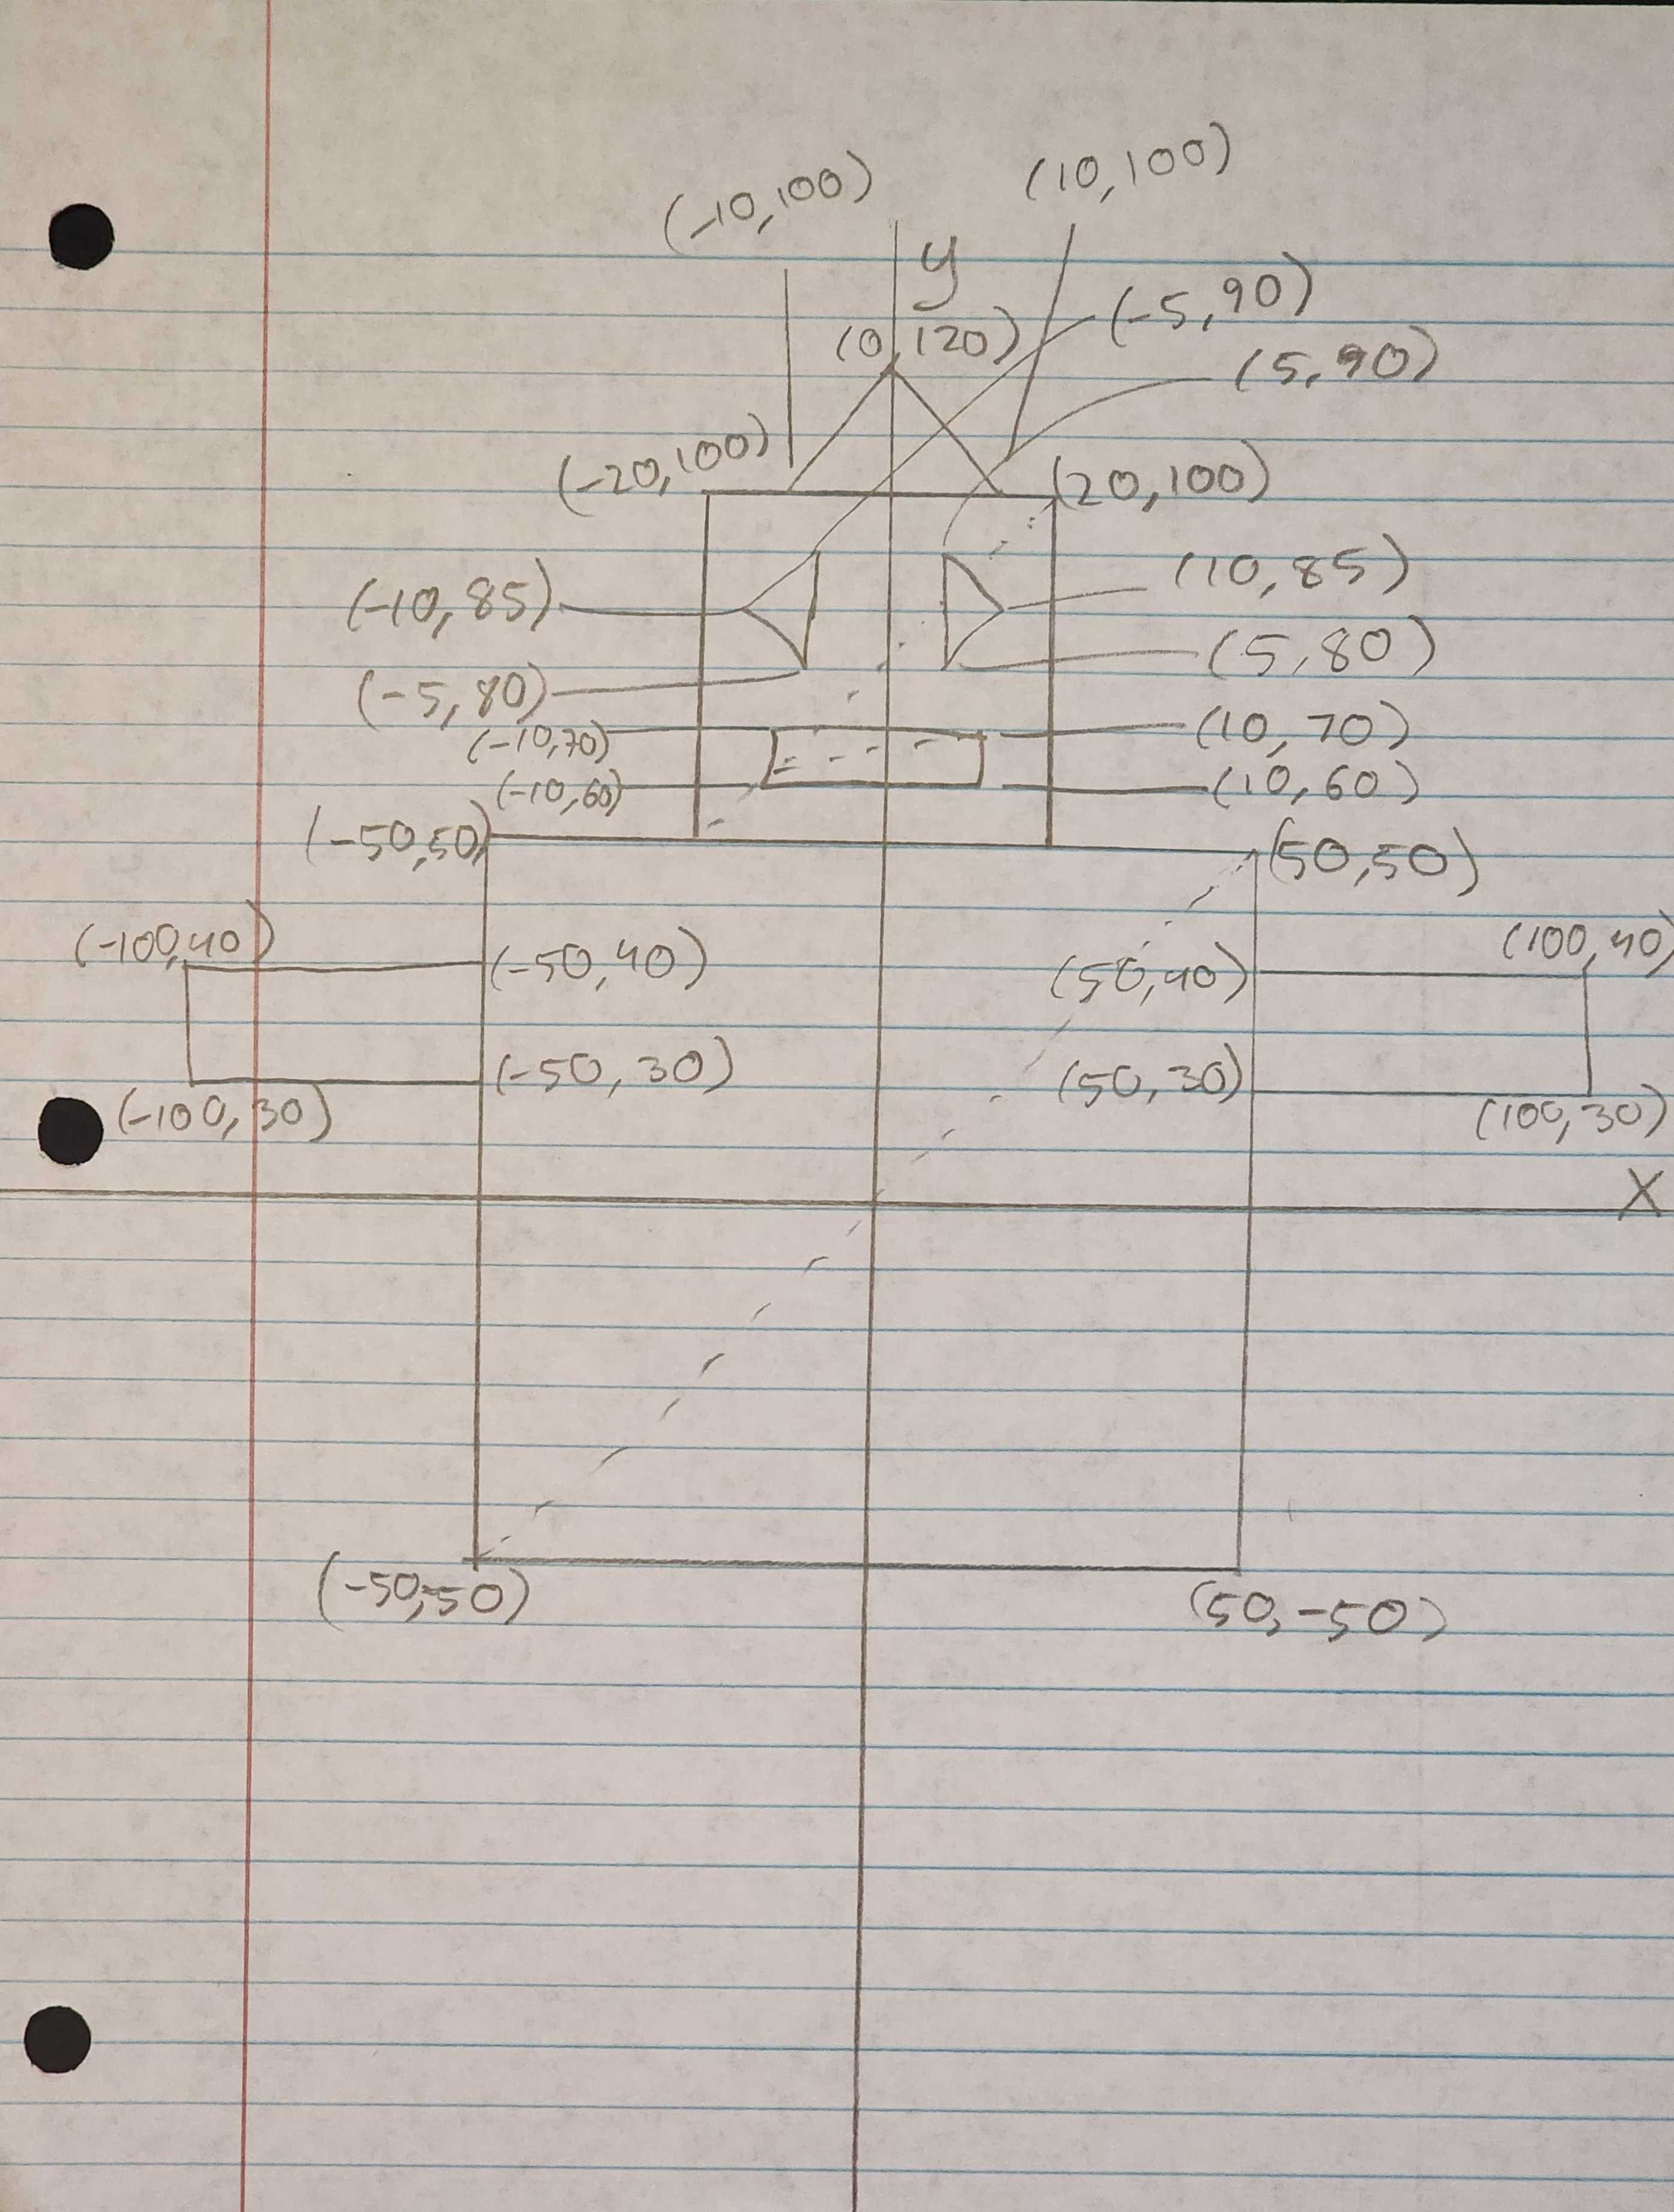 (-10,100)
(10,100)
y
(-5,90)
(0,120)
(5,90)
(-20,100)
(20,100)
(-10,85)
(10,85)
(-5,80)
(5,80)
(-10,70)
(10,70)
(-10,60)
(10,60)
(-50,50)
(50,50)
(-100,40)
(-50,40)
(50,40)
(100,40)
(-50,30)
(50,30)
(-100,30)
(100,30)
X
(-50,-50)
(50,-50)